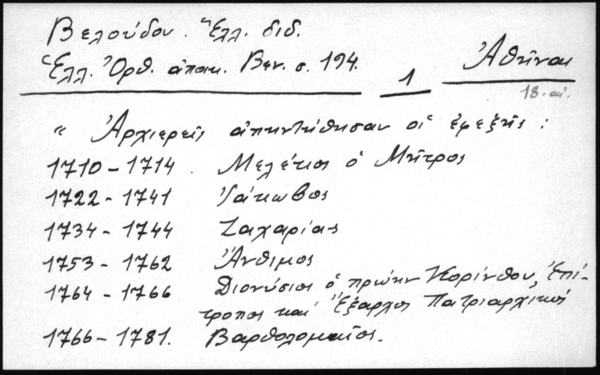 Βελούδου. Ἑλλ. διδ.
Ἑλλ. Ὀρθ. ἀποικ. Βεν. σ. 194.
1
Ἀθῆναι
18. αἰ.
" Ἀρχιερεῖς ἀπηντήθησαν οἱ ἐφεξῆς :
1710 - 1714 Μελέτιος ὁ Μῆτρος
1722 - 1741 Ἰάκωβος
1734 - 1744 Ζαχαρίας
1753 - 1762 Ἄνθιμος
1764 - 1766 Διονύσιος ὁ πρώην Κορίνθου, Ἐπί-
τροπος καὶ Ἔξαρχος Πατριαρχικός
1766 - 1781. Βαρθολομαῖος.